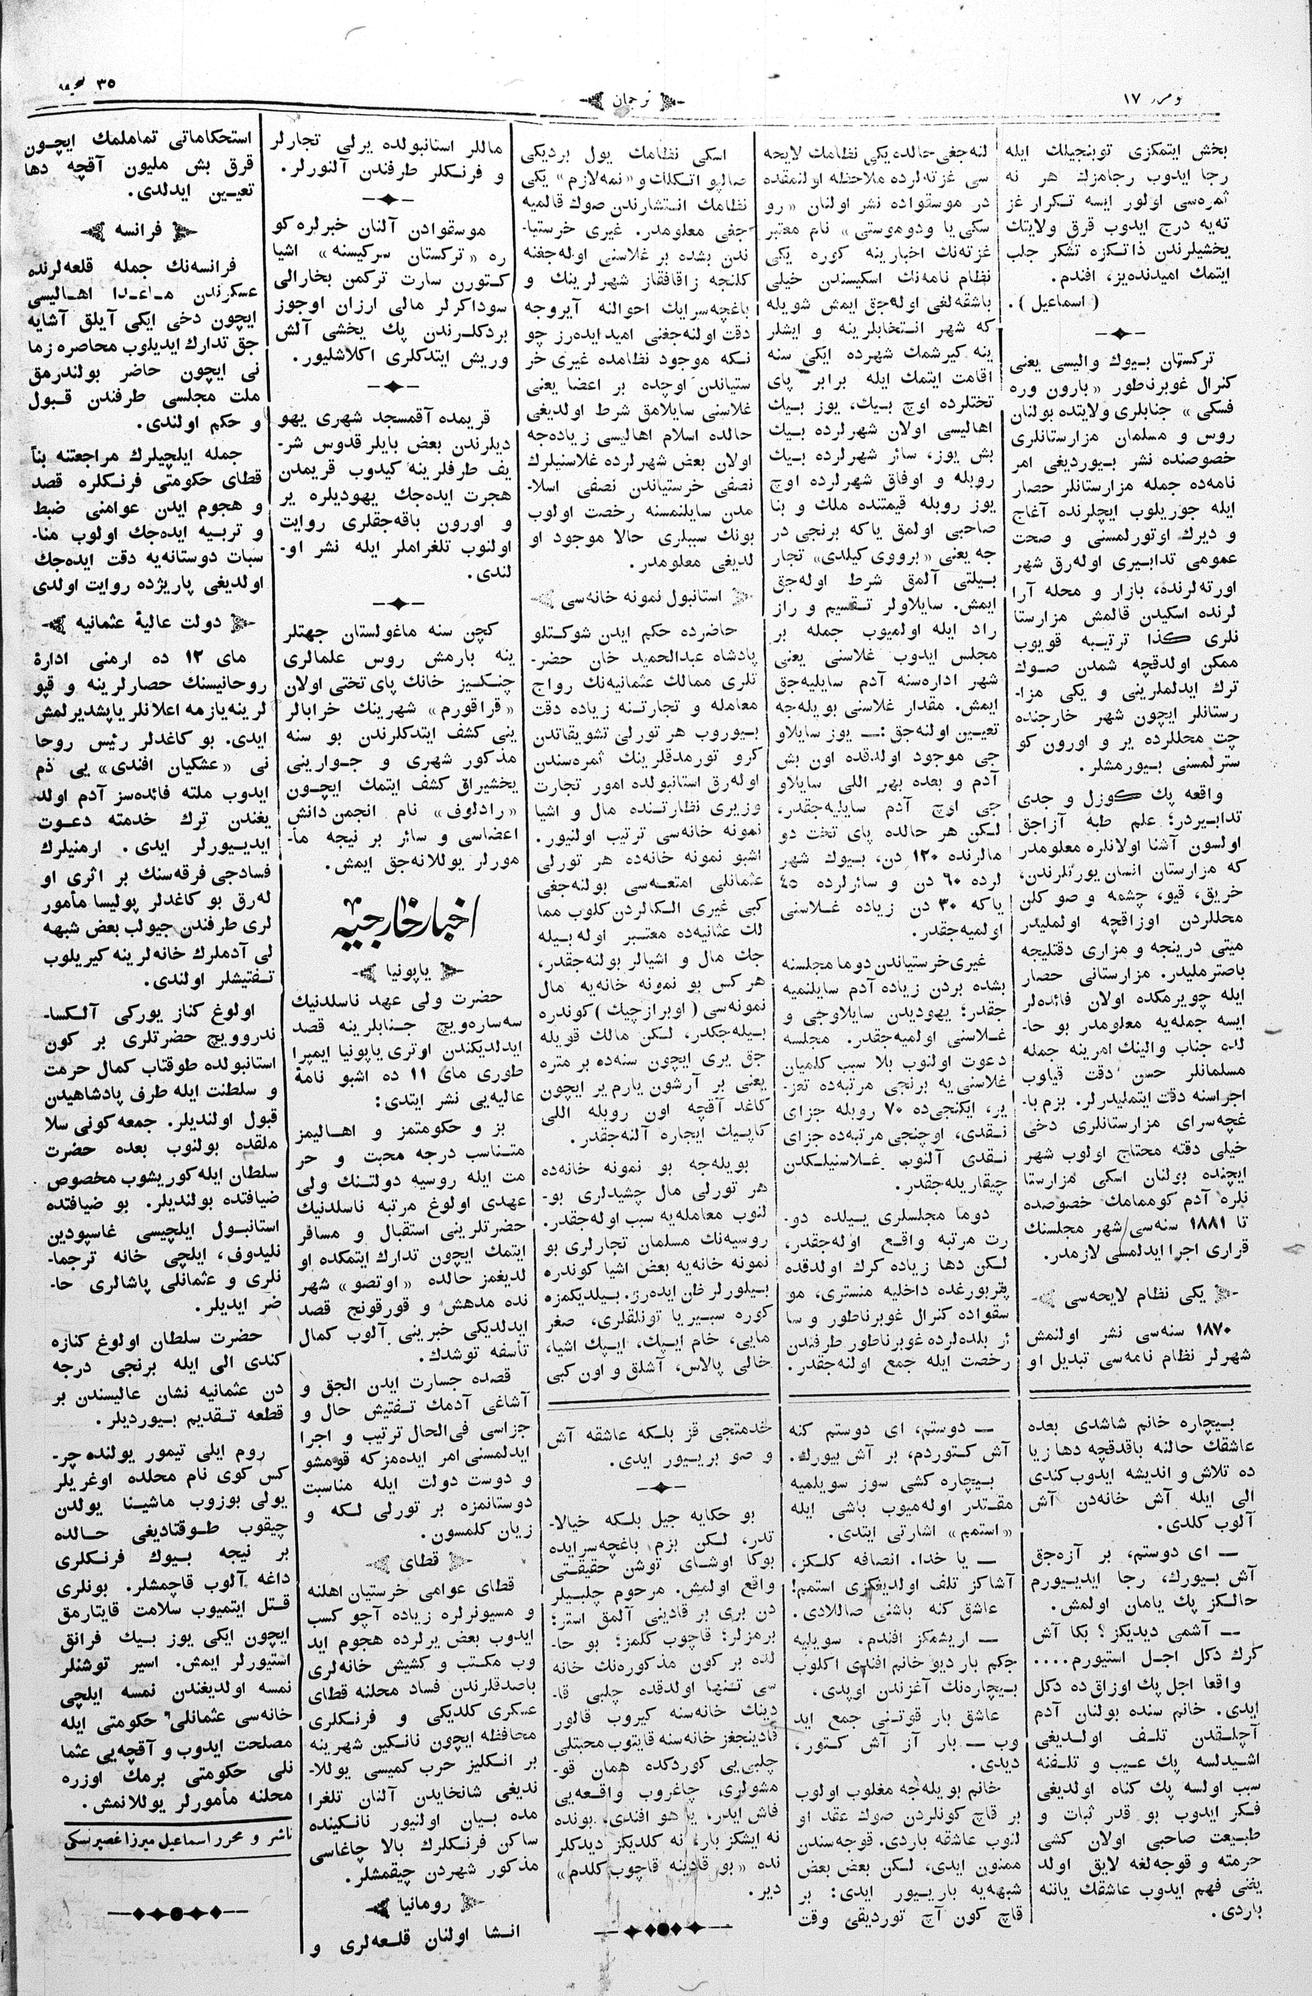 نومرو ١٧
ترجمان
صحيفه ٣٥
بخش ايتمكزى توبنجيلك ايله
رجا ايدوب رجامزك هر نه
ثمره‌سى اولور ايسه تكرار غز
ته‌يه درج ايدوب قرق ولايتك
يخشيلرندن ذاتكزه تشكر جلب
ايتمك اميدنده‌يز، افندم.
(اسماعيل).
تركستان بيوك واليسى يعنى
كنرال غوبرناطور «بارون وره
فسكى» جنابلرى ولايتده بولنان
روس و مسلمان مزارستانلرى
خصوصنده نشر بيورديغى امر
نامه‌ده جمله مزارستانلر حصار
ايله جوريلوب ايچلرنده آغاج
و ديرك اوتورلمسنى و صحت
عمومى تدابيرى اوله‌رق شهر
اورته‌لرنده، بازار و محله آرا
لرنده اسكيدن قالمش مزارستا
نلرى كذا ترتيبه قويوب
ممكن اولدقچه شمدن صوك
ترك ايدلملرينى و يكى مزا-
رستانلر ايچون شهر خارجنده
چت محللرده ير و اورون كو
سترلمسنى بيورمشلر.
واقعه پك كوزل و جدى
تدابيردر؛ علم طبه آزاجق
اولسون آشنا اولانلره معلومدر
كه مزارستان انسان يورتلرندن،
خريق، قيو، چشمه و صو كلن
محللردن اوزاقچه اولمليدر
ميتى درينجه و مزارى دقتليجه
باصترمليدر. مزارستانى حصار
ايله چويرمكده اولان فائده‌لر
ايسه جمله‌يه معلومدر بو حا-
لده جناب والينك امرينه جمله
مسلمانلر حسن دقت قيلوب
اجراسنه دقت ايتمليدرلر. بزم با-
غچه‌سراى مزارستانلرى دخى
خيلى دقته محتاج اولوب شهر
ايچنده بولنان اسكى مزارستا
نلره آدم كوممامك خصوصده
تا ١٨٨١ سنه‌سى شهر مجلسنك
قرارى اجرا ايدلمسى لازمدر.
يكى نظام لايحه‌سى
١٨٧٠ سنه‌سى نشر اولنمش
شهرلر نظام نامه‌سى تبديل او
لنه‌جغى حالده يكى نظامك لايحه
سى غزته‌لرده ملاحظه اولنمقده
در موسقواده نشر اولنان «رو
سكى يا ودوموستى» نام معتبر
غزته‌نك اخبارينه كوره يكى
نظام نامه‌نك اسكيسندن خيلى
باشقه‌لغى اوله‌جق ايمش شويله
كه شهر انتخابلرينه و ايشلر
ينه كيرشمك شهرده ايكى سنه
اقامت ايتمك ايله برابر پاى
تختلرده اوچ بيك، يوز بيك
اهاليسى اولان شهرلرده بيك
بش يوز، سائر شهرلرده بيك
روبله و اوفاق شهرلرده اوچ
يوز روبله قيمتنده ملك و بنا
صاحبى اولمق ياكه برنجى در
جه يعنى «برووى كيلدى» تجار
بيلتى آلمق شرط اوله‌جق
ايمش. سايلاولر تقسيم و راز
راد ايله اولميوب جمله بر
مجلس ايدوب غلاسنى يعنى
شهر اداره‌سنه آدم سايليه‌جق
ايمش. مقدار غلاسنى بويله‌جه
تعيين اولنه‌جق: — يوز سايلاو
جى موجود اولدقده اون بش
آدم و بعده بهر اللى سايلاو
جى اوچ آدم سايليه‌جقدر،
لكن هر حالده پاى تخت دو
مالرنده ١٢٠ دن، بيوك شهر
لرده ٦٠ دن و سائرلرده ٤٥
ياكه ٣٠ دن زياده غلاسنى
اولميه‌جقدر.
غيرى خرستياندن دوما مجلسنه
بشده بردن زياده آدم سايلنميه
جقدر؛ يهوديدن سايلاوجى و
غلاسنى اولميه‌جقدر. مجلسه
دعوت اولنوب بلا سبب كلميان
غلاسنى‌يه برنجى مرتبه‌ده تعز-
ير، ايكنجى‌ده ٧٠ روبله جزاى
نقدى، اوچنجى مرتبه‌ده جزاى
نقدى آلنوب غلاسنيلكدن
چيقاريله‌جقدر.
دوما مجلسلرى ييلده دو-
رت مرتبه واقع اوله‌جقدر،
لكن دها زياده كرك اولدقده
پتربورغده داخليه منسترى، مو
سقواده كنرال غوبرناطور و سا
ئر بلده‌لرده غوبرناطور طرفندن
رخصت ايله جمع اولنه‌جقدر.
اسكى نظامك يول برديكى
صالپو اتكلك و «نمه‌لازم» يكى
نظامك انتشارندن صوك قالميه
جغى معلومدر. غيرى خرستيا-
ندن بشده بر غلاسنى اوله‌جغنه
كلنجه زاقافقاز شهرلرينك و
باغچه‌سرايك احوالنه آيروجه
دقت اولنه‌جغنى اميد ايده‌رز چو
نكه موجود نظامده غيرى خر
ستياندن اوچده بر اعضا يعنى
غلاسنى سايلامق شرط اولديغى
حالده اسلام اهاليسى زياده‌جه
اولان بعض شهرلرده غلاسنيلرك
نصفى خرستياندن نصفى اسلا-
مدن سايلنمسنه رخصت اولوب
بونك سبيلرى حالا موجود او
لديغى معلومدر.
استانبول نمونه خانه‌سى
حاضرده حكم ايدن شوكتلو
پادشاه عبدالحميد خان حضر-
تلرى ممالك عثمانيه‌نك رواج
معامله و تجارتنه زياده دقت
بيوروب هر تورلى تشويقاتدن
كرو تورمدقلرينك ثمره‌سندن
اوله‌رق استانبولده امور تجارت
وزيرى نظارتنده مال و اشيا
نمونه خانه‌سى ترتيب اولنيور.
اشبو نمونه خانه‌ده هر تورلى
عثمانلى امتعه‌سى بولنه‌جغى
كبى غيرى الكالردن كلوب مما
لك عثمانيه‌ده معتبر اوله‌بيله
جك مال و اشيالر بولنه‌جقدر،
هر كس بو نمونه خانه‌يه مال
نمونه‌سى (اوبرازچيك) كوندره
بيله‌جكدر، لكن مالك قويله
جق يرى ايچون سنه‌ده بر متره
يعنى بر آرشون يارم ير ايچون
كاغد آقچه اون روبله اللى
كاپيك ايجاره آلنه‌جقدر.
بويله‌جه بو نمونه خانه‌ده
هر تورلى مال چشيدلرى بو-
لنوب معامله‌يه سبب اوله‌جقدر.
روسيه‌نك مسلمان تجارلرى بو
نمونه خانه‌يه بعض اشيا كوندره
بيلورلر ظن ايده‌رز. بيلديكمزه
كوره سبيريا تونلقلرى، صغر
مايى، خام ايپك، ايپك اشيا،
خالى پالاس، آشلق و اون كبى
ماللر استانبولده يرلى تجارلر
و فرنكلر طرفندن آلنورلر.
موسقوادن آلنان خبرلره كو
ره «تركستان سركيسنه» اشيا
كتورن سارت تركمن بخارالى
سوداكرلر مالى ارزان اوجوز
بردكلرندن پك يخشى آلش
وريش ايتدكلرى اكلاشليور.
قريمده آقمسجد شهرى يهو
ديلرندن بعض بايلر قدوس شر-
يف طرفلرينه كيدوب قريمدن
هجرت ايده‌جك يهوديلره ير
و اورون باقه‌جقلرى روايت
اولنوب تلغراملر ايله نشر او-
لندى.
كچن سنه ماغولستان جهتلر
ينه بارمش روس علمالرى
چنكيز خانك پاى تختى اولان
«قراقورم» شهرينك خرابالر
ينى كشف ايتدكلرندن بو سنه
مذكور شهرى و جوارينى
يخشيراق كشف ايتمك ايچون
«رادلوف» نام انجمن دانش
اعضاسى و سائر بر نيچه ما-
مورلر يوللانه‌جق ايمش.
اخبار خارجيه
ياپونيا
حضرت ولى عهد ناسلدنيك
سه‌ساره‌ويچ جنابلرينه قصد
ايدلديكندن اوترى ياپونيا ايمپرا
طورى ماى ١١ ده اشبو نامهٔ
عاليه‌يى نشر ايتدى:
بز و حكومتمز و اهاليمز
متناسب درجه محبت و حر
مت ايله روسيه دولتنك ولى
عهدى اولوغ مرتبه ناسلدنيك
حضرتلرينى استقبال و مسافر
ايتمك ايچون تدارك ايتمكده او
لديغمز حالده «اوتصو» شهر
نده مدهش و قورقونج قصد
ايدلديكى خبرينى آلوب كمال
تأسفه توشدك.
قصده جسارت ايدن الجق و
آشاغى آدمك تفتيش حال و
جزاسى فى‌الحال ترتيب و اجرا
ايدلمسنى امر ايده‌مزكه قومشو
و دوست دولت ايله مناسبت
دوستانمزه بر تورلى لكه و
زيان كلمسون.
قطاى
قطاى عوامى خرستيان اهلنه
و مسيونرلره زياده آچو كسب
ايدوب بعض يرلرده هجوم ايد
وب مكتب و كشيش خانه‌لرى
باصدقلرندن فساد محلنه قطاى
عسكرى كلديكى و فرنكلرى
محافظه ايچون نانكين شهرينه
بر انكليز حرب كميسى يوللا-
نديغى شانخايدن آلنان تلغرا
مده بيان اولنيور نانكينده
ساكن فرنكلرك بالا چاغاسى
مذكور شهردن چيقمشلر.
رومانيا
انشا اولنان قلعه‌لرى و
استحكاماتى تماملمك ايچون
قرق بش مليون آقچه دها
تعيين ايدلدى.
فرانسه
فرانسه‌نك جمله قلعه‌لرنده
عسكرندن ماعدا اهاليسى
ايچون دخى ايكى آيلق آشايه
جق تدارك ايديلوب محاصره زما
نى ايچون حاضر بولندرمق
ملت مجلسى طرفندن قبول
و حكم اولندى.
جمله ايلچيلرك مراجعتنه بناً
قطاى حكومتى فرنكلره قصد
و هجوم ايدن عوامنى ضبط
و تربيه ايده‌جك اولوب منا-
سبات دوستانه‌يه دقت ايده‌جك
اولديغى پاريژده روايت اولدى
دولت عاليهٔ عثمانيه
ماى ١٢ ده ارمنى ادارهٔ
روحانيسنك حصارلرينه و قپو
لرينه يازمه اعلانلر ياپشديرلمش
ايدى. بو كاغدلر رئيس روحا
نى «عشكيان افندى» يى ذم
ايدوب ملته فائده‌سز آدم اولد
يغندن ترك خدمته دعوت
ايديورلر ايدى. ارمنيلرك
فسادجى فرقه‌سنك بر اثرى او
له‌رق بو كاغدلر پوليسا مأمور
لرى طرفندن جيولب بعض شبهه
لى آدملرك خانه‌لرينه كيريلوب
تفتيشلر اولندى.
اولوغ كناز يوركى آلكسا-
ندروويچ حضرتلرى بر كون
استانبولده طوقتاب كمال حرمت
و سلطنت ايله طرف پادشاهيدن
قبول اولنديلر. جمعه كونى سلا
ملقده بولنوب بعده حضرت
سلطان ايله كوريشوب مخصوص
ضيافتده بولنديلر. بو ضيافتده
استانبول ايلچيسى غاسپودين
نليدوف، ايلچى خانه ترجما-
نلرى و عثمانلى پاشالرى حا-
ضر ايديلر.
حضرت سلطان اولوغ كنازه
كندى الى ايله برنجى درجه
دن عثمانيه نشان عاليسندن بر
قطعه تقديم بيورديلر.
روم ايلى تيمور يولنده چر-
كس كوى نام محلده اوغريلر
يولى بوزوب ماشينا يولدن
چيقوب طوقتاديغى حالده
بر نيچه بيوك فرنكلرى
داغه آلوب قاچمشلر. بونلرى
قتل ايتميوب سلامت قايتارمق
ايچون ايكى يوز بيك فرانق
استيورلر ايمش. اسير توشنلر
نمسه اولديغندن نمسه ايلچى
خانه‌سى عثمانلى حكومتى ايله
مصلحت ايدوب و آقچه‌يى عثما
نلى حكومتى برمك اوزره
محلنه مأمورلر يوللانمش.
ناشر و محرر اسماعيل ميرزا غصپرنسكى
بيچاره خانم شاشدى بعده
عاشقك حالنه باقدقچه دها زيا
ده تلاش و انديشه ايدوب كندى
الى ايله آش خانه‌دن آش
آلوب كلدى.
— اى دوستم، بر آزه‌جق
آش بيورك، رجا ايديورم
حالكز پك يامان اولمش.
— آشمى ديديكز؟ بكا آش
كرك دكل اجل استيورم....
واقعا اجل پك اوزاق ده دكل
ايدى. خانم سنده بولنان آدم
آچلقدن تلف اولديغى
اشيدلسه پك عيب و تلفنه
سبب اولسه پك كناه اولديغى
فكر ايدوب بو قدر ثبات و
طبيعت صاحبى اولان كشى
حرمته و قوجه‌لغه لايق اولد
يغنى فهم ايدوب عاشقك ياننه
باردى.
— دوستم، اى دوستم كنه
آش كتوردم، بر آش بيورك.
بيچاره كشى سوز سويلميه
مقتدر اوله‌ميوب باشى ايله
«استمم» اشارتى ايتدى.
— يا خدا. انصافه كلكز،
آشاكز تلف اولديغكزى استمم!
عاشق كنه باشنى صاللادى.
— اريشمكز افندم، سويليه
جكم بار ديو خانم افندى اكلوب
بيچاره‌نك آغزندن اوپدى.
عاشق بار قوتنى جمع ايد
وب — بار آز آش كتور،
ديدى.
خانم بويله‌جه مغلوب اولوب
بر قاچ كونلردن صوك عقد او
لنوب عاشقه باردى. قوجه‌سندن
ممنون ايدى، لكن بعض بعض
شبهه‌يه باريور ايدى: بر
قاچ كون آچ تورديغى وقت
خدمتجى قز بلكه عاشقه آش
و صو بريور ايدى.
بو حكايه جيل بلكه خيالا-
تدر، لكن بزم باغچه‌سرايده
بوكا اوشاى توشن حقيقتى
واقع اولمش. مرحوم چلبيلر
دن برى بر قادينى آلمق استر؛
برمزلر؛ قاچوب كلمز؛ بو حا-
لده بر كون مذكوره‌نك خانه
سى تنها اولدقده چلبى قا-
دينك خانه‌سنه كيروب قالور
قادينجغز خانه‌سنه قايتوب محبتلى
چلبى‌يى كوردكده همان قو-
مشولرى، چاغروب واقعه‌يى
فاش ايدر، يا هو افندى، بونده
نه ايشكز بار، نه كلديكز ديدكلر
نده «بو قادينه قاچوب كلدم»
دير.